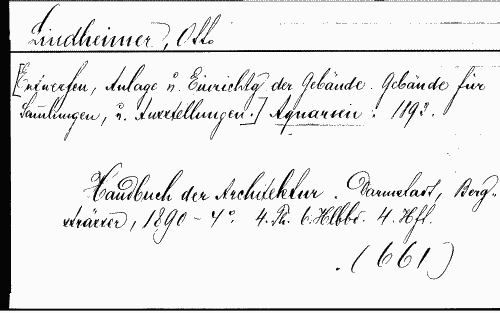 Lindheimer, Otto
[Entwerfen, Anlage u. Einrichtg der Gebäude. Gebäude für
Sammlungen, u. Ausstellungen.] Aquarien: 1893.
Handbuch der Architektur. Darmstadt, Berg-
strässer, 1890 - 4°. 4. Th. 6. Hlbbd. 4. Hft.
(661)